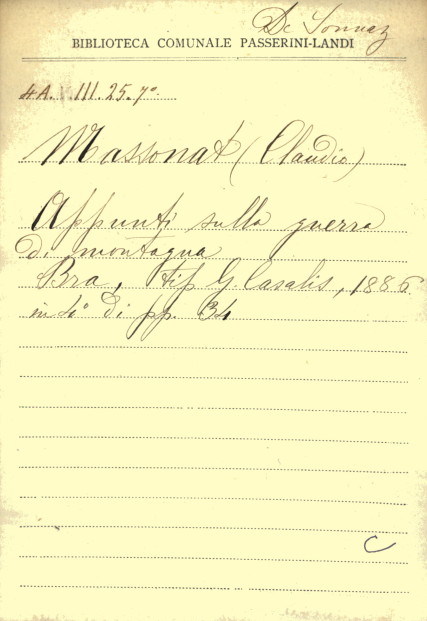 De Sonnaz
BIBLIOTECA COMUNALE PASSERINI-LANDI
4A. III. 25. 7º.
Massonat (Claudio)
Appunti sulla guerra
di montagna
Bra, tip G. Casalis, 1886.
in 4º di pp. 34
C